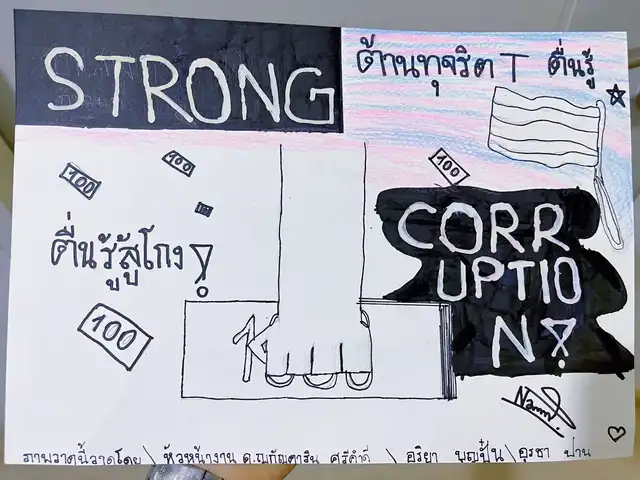 STRONG
ต้านทุจริต T ตื่นรู้
100
100
100
ตื่นรู้สู้โกง!
CORR
UPTIO
N!
100
ภาพวาดนี้วาดโดย \ หัวหน้างาน ด.ญกัญดาริน ศรีคำดี \ อริยา บุญปั๋น \ อุรชา ปาน